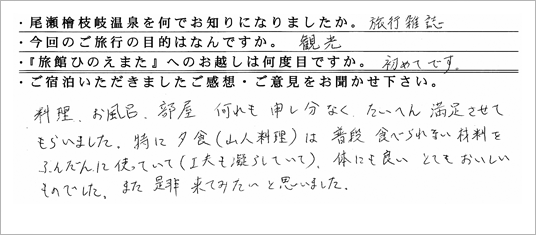 ・尾瀬檜枝岐温泉を何でお知りになりましたか。旅行雑誌
・今回のご旅行の目的はなんですか。観光
・『旅館ひのえまた』へのお越しは何度目ですか。初めてです。
・ご宿泊いただきましたご感想・ご意見をお聞かせ下さい。
料理、お風呂、部屋 何れも申し分なく、たいへん満足させて
もらいました。特に夕食(山人料理)は普段食べられない材料を
ふんだんに使っていて(工夫も凝らしていて)、体にも良いとてもおいしい
ものでした。また是非来てみたいと思いました。